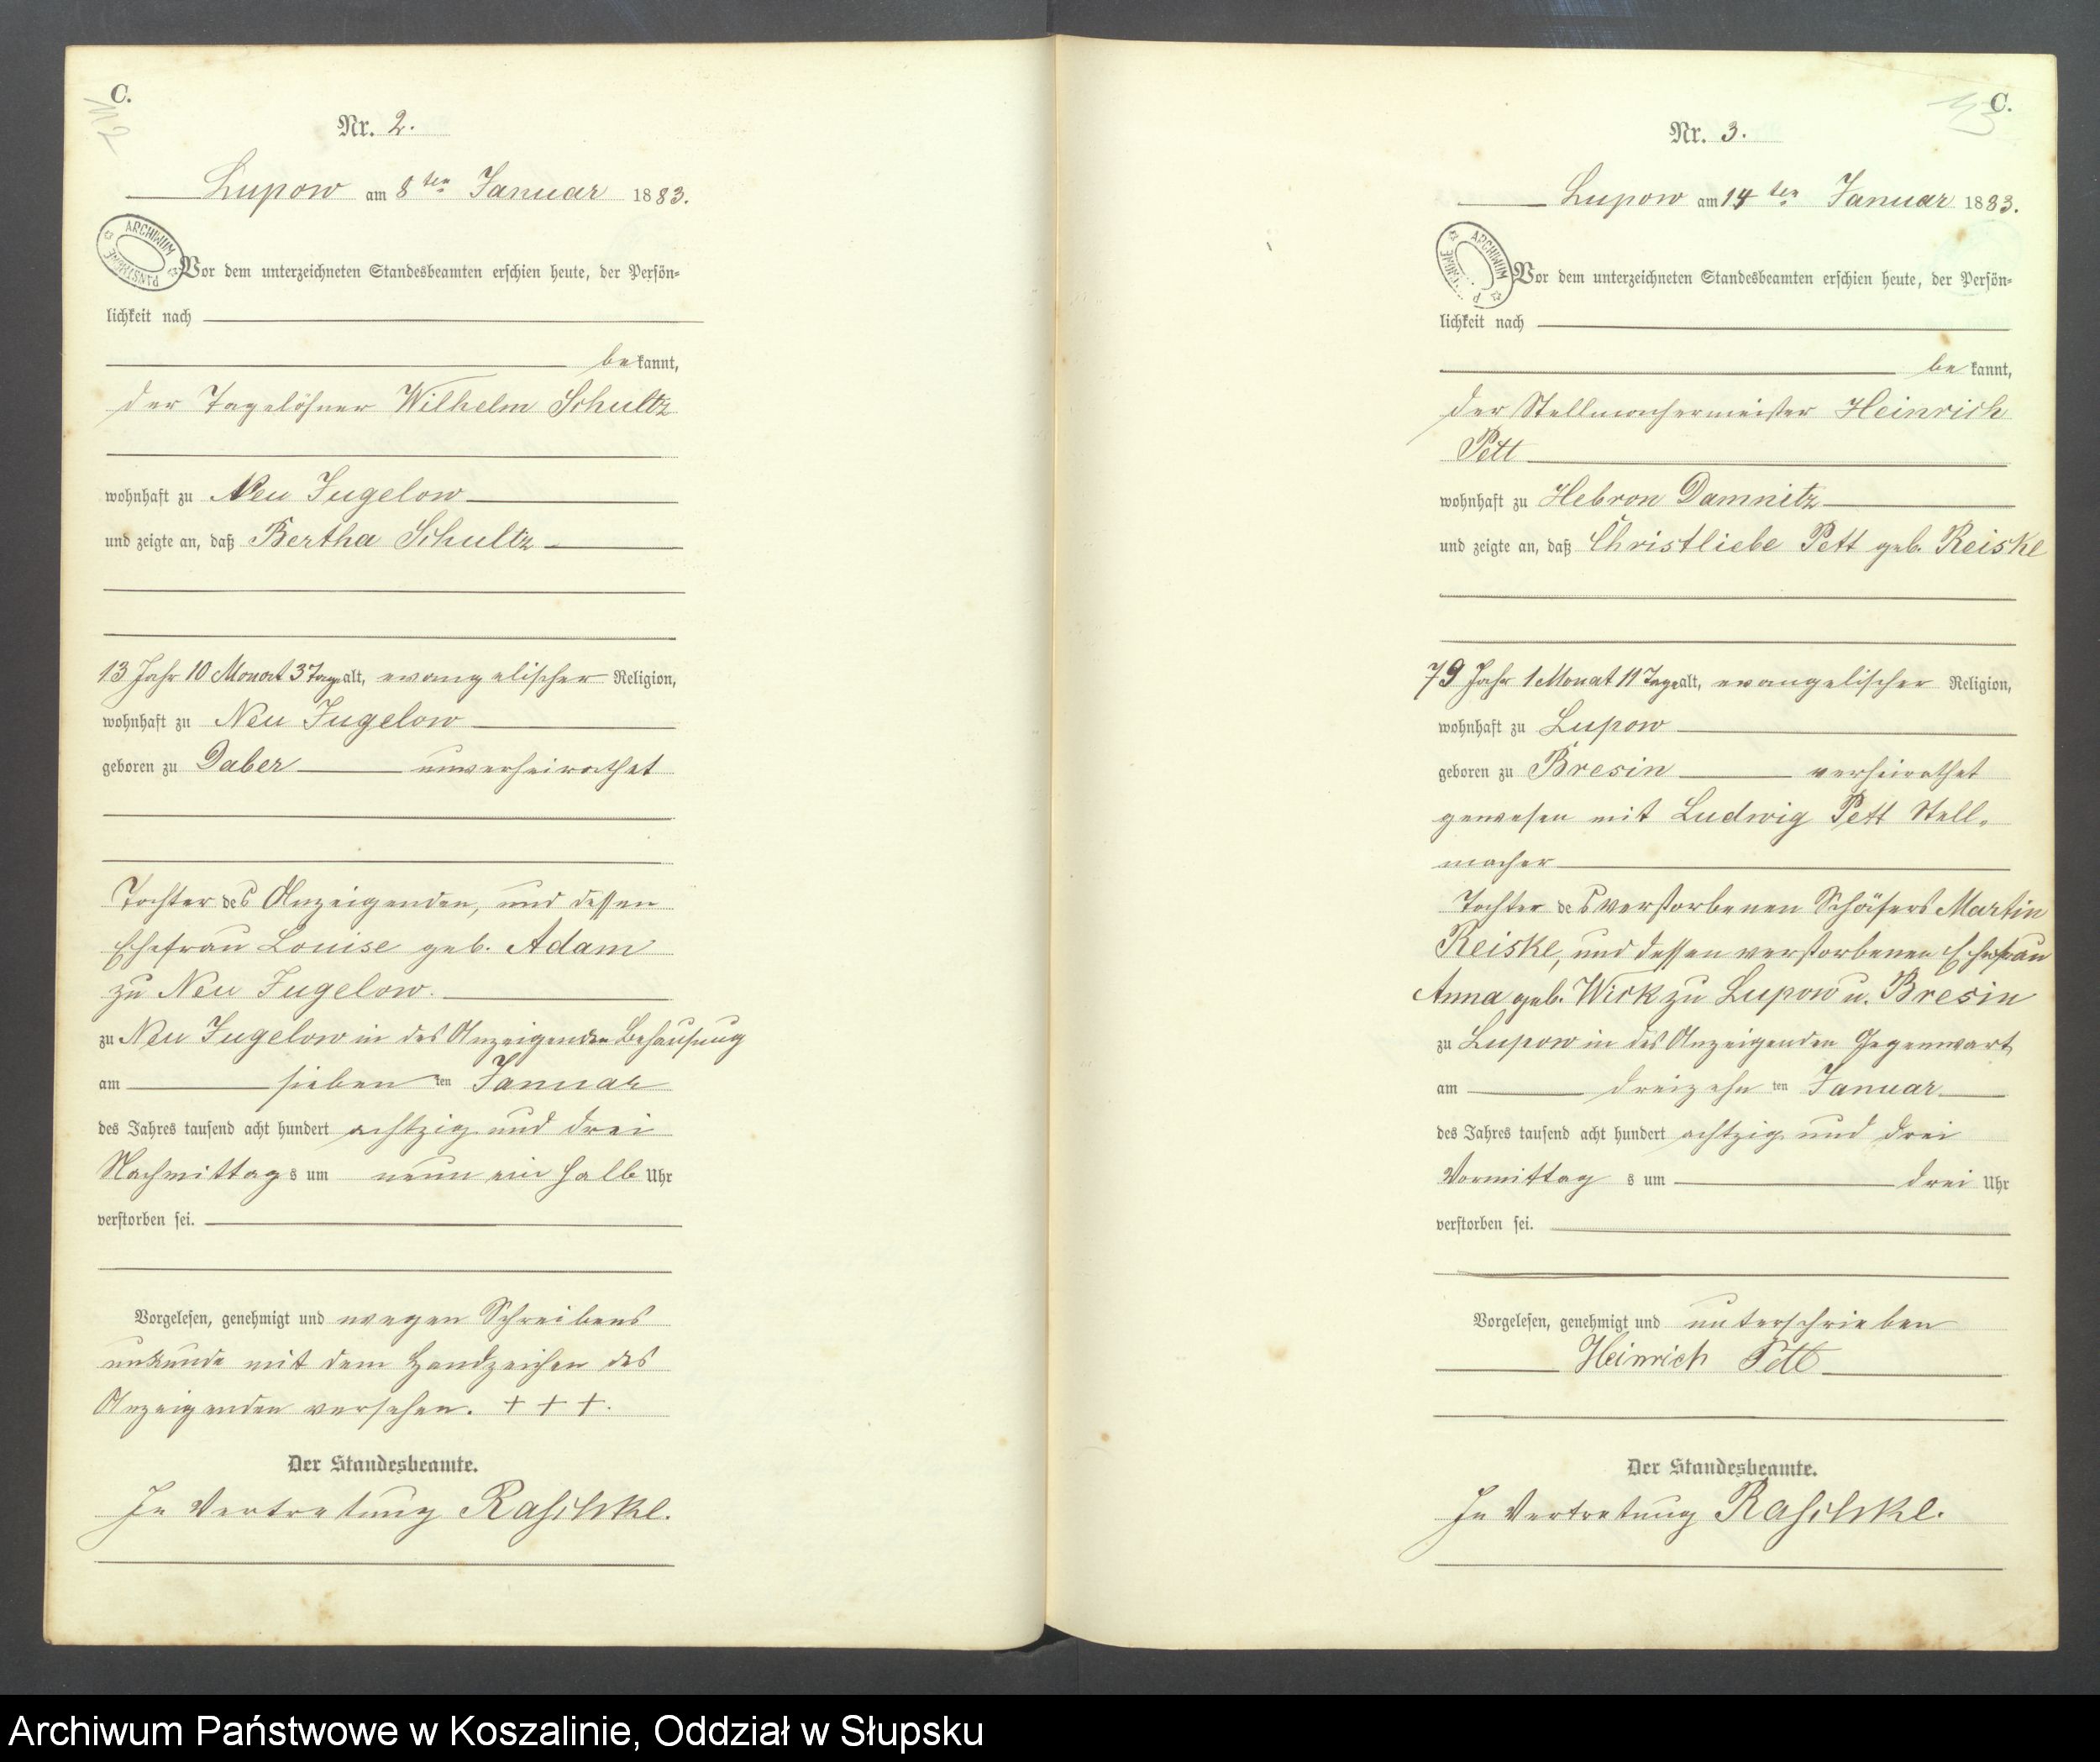 C.
Nr. 2.
Lupow am 8ten Januar 1883.
ARCHIWUM PAŃSTWOWE
Vor dem unterzeichneten Standesbeamten erschien heute, der Persön-
lichkeit nach
bekannt,
der Tagelöhner Wilhelm Schultz
wohnhaft zu Neu Jugelow
und zeigte an, daß Bertha Schultz
13 Jahr 10 Monat 3 Tage alt, evangelischer Religion,
wohnhaft zu Neu Jugelow
geboren zu Daber unverheirathet
Tochter des Anzeigenden, und dessen
Ehefrau Louise geb. Adam
zu Neu Jugelow.
zu Neu Jugelow in des Anzeigenden Behausung
am sieben ten Januar
des Jahres tausend acht hundert achtzig und drei
Nachmittags um neun ein halb Uhr
verstorben sei.
Vorgelesen, genehmigt und wegen Schreibens
unkunde mit dem Handzeichen des
Anzeigenden versehen. + + +.
Der Standesbeamte.
In Vertretung Raschke.
C.
Nr. 3.
Lupow am 14ten Januar 1883.
ARCHIWUM
Vor dem unterzeichneten Standesbeamten erschien heute, der Persön-
lichkeit nach
bekannt,
der Stellmachermeister Heinrich
Pett
wohnhaft zu Hebron Damnitz
und zeigte an, daß Christliebe Pett geb. Reiske
79 Jahr 1 Monat 11 Tage alt, evangelischer Religion,
wohnhaft zu Lupow
geboren zu Bresin verheirathet
gewesen mit Ludwig Pett Stell-
macher
Tochter des verstorbenen Schäfers Martin
Reiske, und dessen verstorbenen Ehefrau
Anna geb. Wirk zu Lupow u. Bresin
zu Lupow in des Anzeigenden Gegenwart
am dreizehn ten Januar
des Jahres tausend acht hundert achtzig und drei
Vormittags um drei Uhr
verstorben sei.
Vorgelesen, genehmigt und unterschrieben
Heinrich Pett
Der Standesbeamte.
In Vertretung Raschke.
Archiwum Państwowe w Koszalinie, Oddział w Słupsku